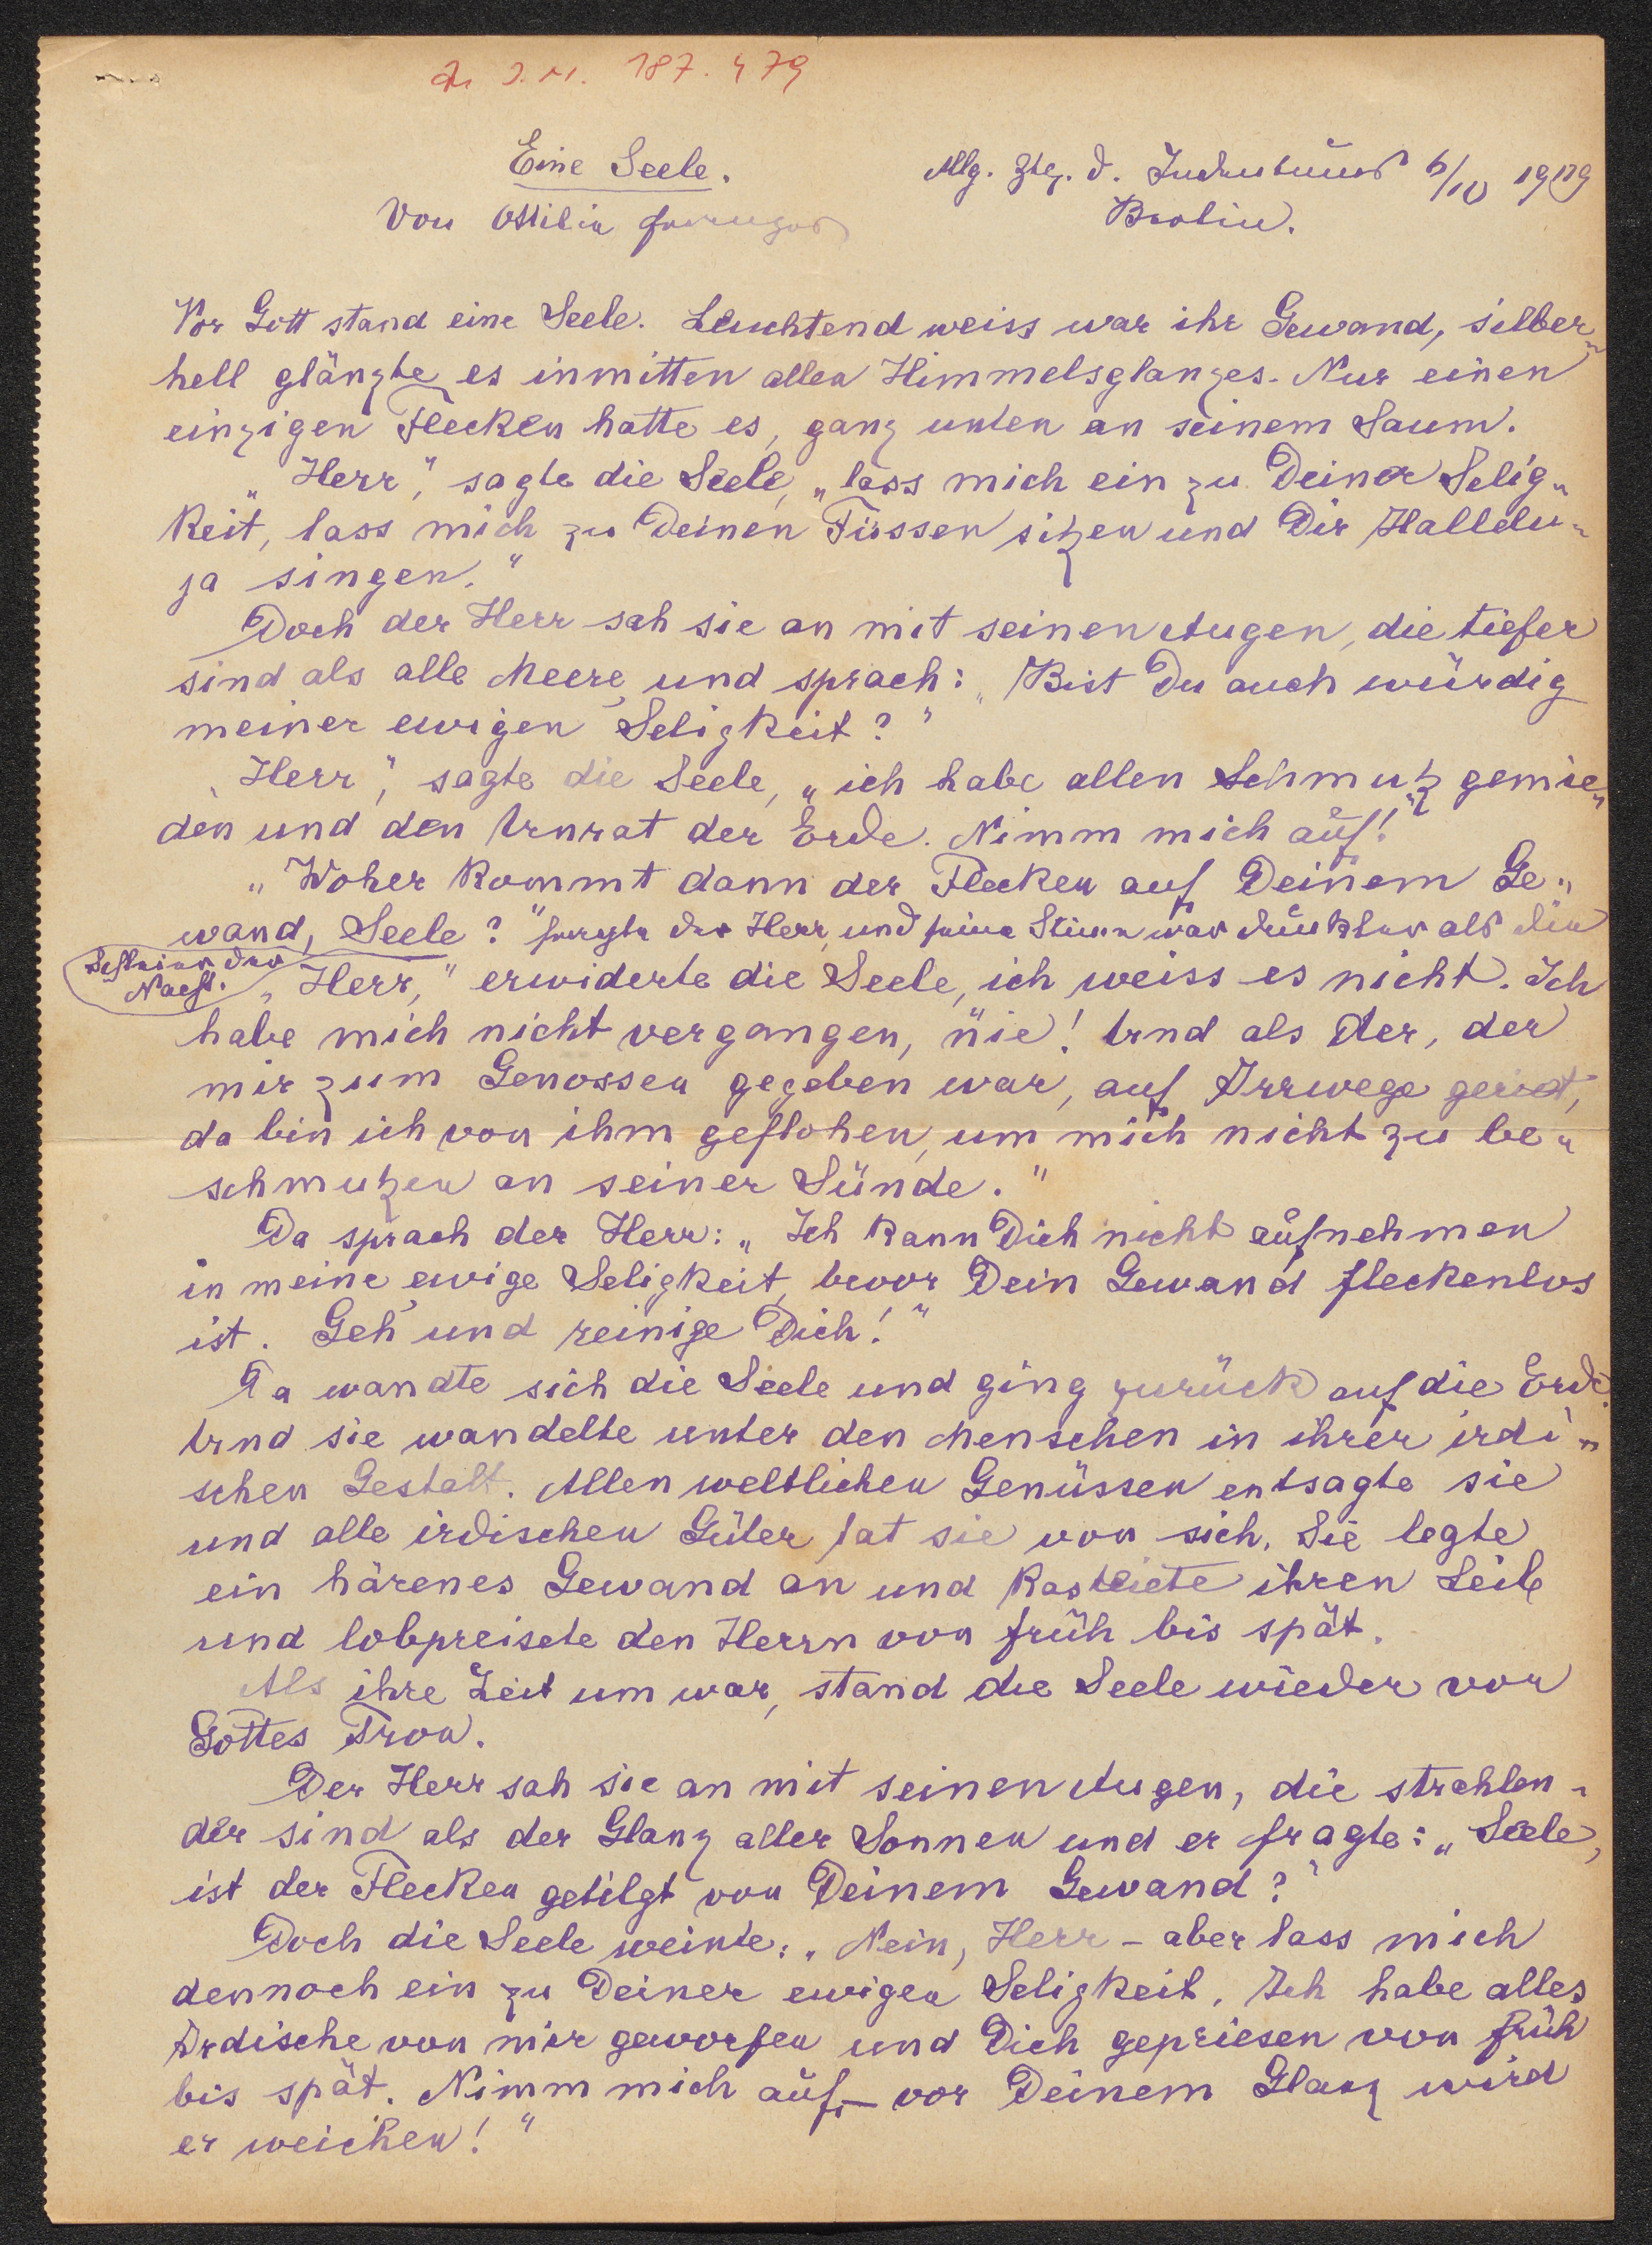 J. N. 187.479
Eine Seele.
Allg. Ztg. d. Judentums 6/10 1919
Von Ottilie
Berlin.
Vor Gott stand eine Seele. Leuchtend weiss war ihr Gewand, silber„
hell glänzte es inmitten allen Himmelsglanzes. Nur einen
einzigen Flecken hatte es, ganz unten an seinem Saum.
„Herr", sagte die Seele, „lass mich ein zu Deiner Selig„
keit, lass mich zu Deinen Füssen sitzen und Dir Hallelu„
ja singen."
Doch der Herr sah sie an mit seinen Augen, die tiefer
sind als alle Meere, und sprach: „Bist Du auch würdig
meiner ewigen Seligkeit?"
„Herr", sagte die Seele, „ich habe allen Schmutz gemie„
den und den Unrat der Erde. Nimm mich auf!"
„Woher kommt dann der Flecken auf Deinem Ge„
wand, Seele?" fragte der Herr, und seine Stimme war dunkler als die
Schleier der
Nacht.
„Herr," erwiderte die Seele, ich weiss es nicht. Ich
habe mich nicht vergangen, nie! Und als der, der
mir zum Genossen gegeben war, auf Irrwege geriet,
da bin ich von ihm geflohen, um mich nicht zu be„
schmutzen an seiner Sünde."
Da sprach der Herr: „Ich kann Dich nicht aufnehmen
in meine ewige Seligkeit, bevor Dein Gewand fleckenlos
ist. Geh und reinige Dich!"
Da wandte sich die Seele und ging zurück auf die Erde.
Und sie wandelte unter den Menschen in ihrer irdi„
schen Gestalt. Allen weltlichen Genüssen entsagte sie
und alle irdischen Güter tat sie von sich. Sie legte
ein härenes Gewand an und kasteiete ihren Leib
und lobpreisete den Herrn von früh bis spät.
Als ihre Zeit um war, stand die Seele wieder vor
Gottes Tron.
Der Herr sah sie an mit seinen Augen, die strahlen„
der sind als der Glanz aller Sonnen und er fragte: „Seele,
ist der Flecken getilgt von Deinem Gewand?"
Doch die Seele weinte: „Nein, Herr – aber lass mich
dennoch ein zu Deiner ewigen Seligkeit. Ich habe alles
Irdische von mir geworfen und Dich gepriesen von früh
bis spät. Nimm mich auf – vor Deinem Glanz wird
er weichen!"